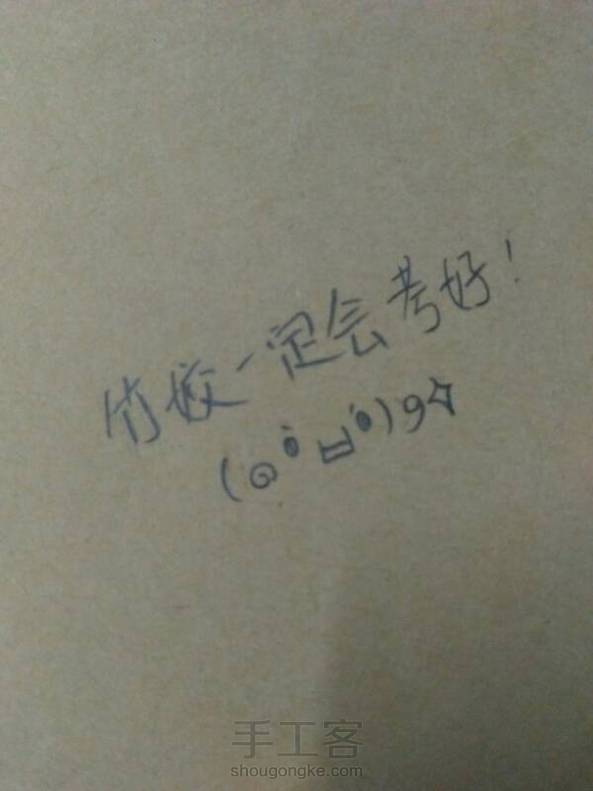 竹姣一定会考好!
(๑•̀ㅂ•́)و✧
手工客
shougongke.com